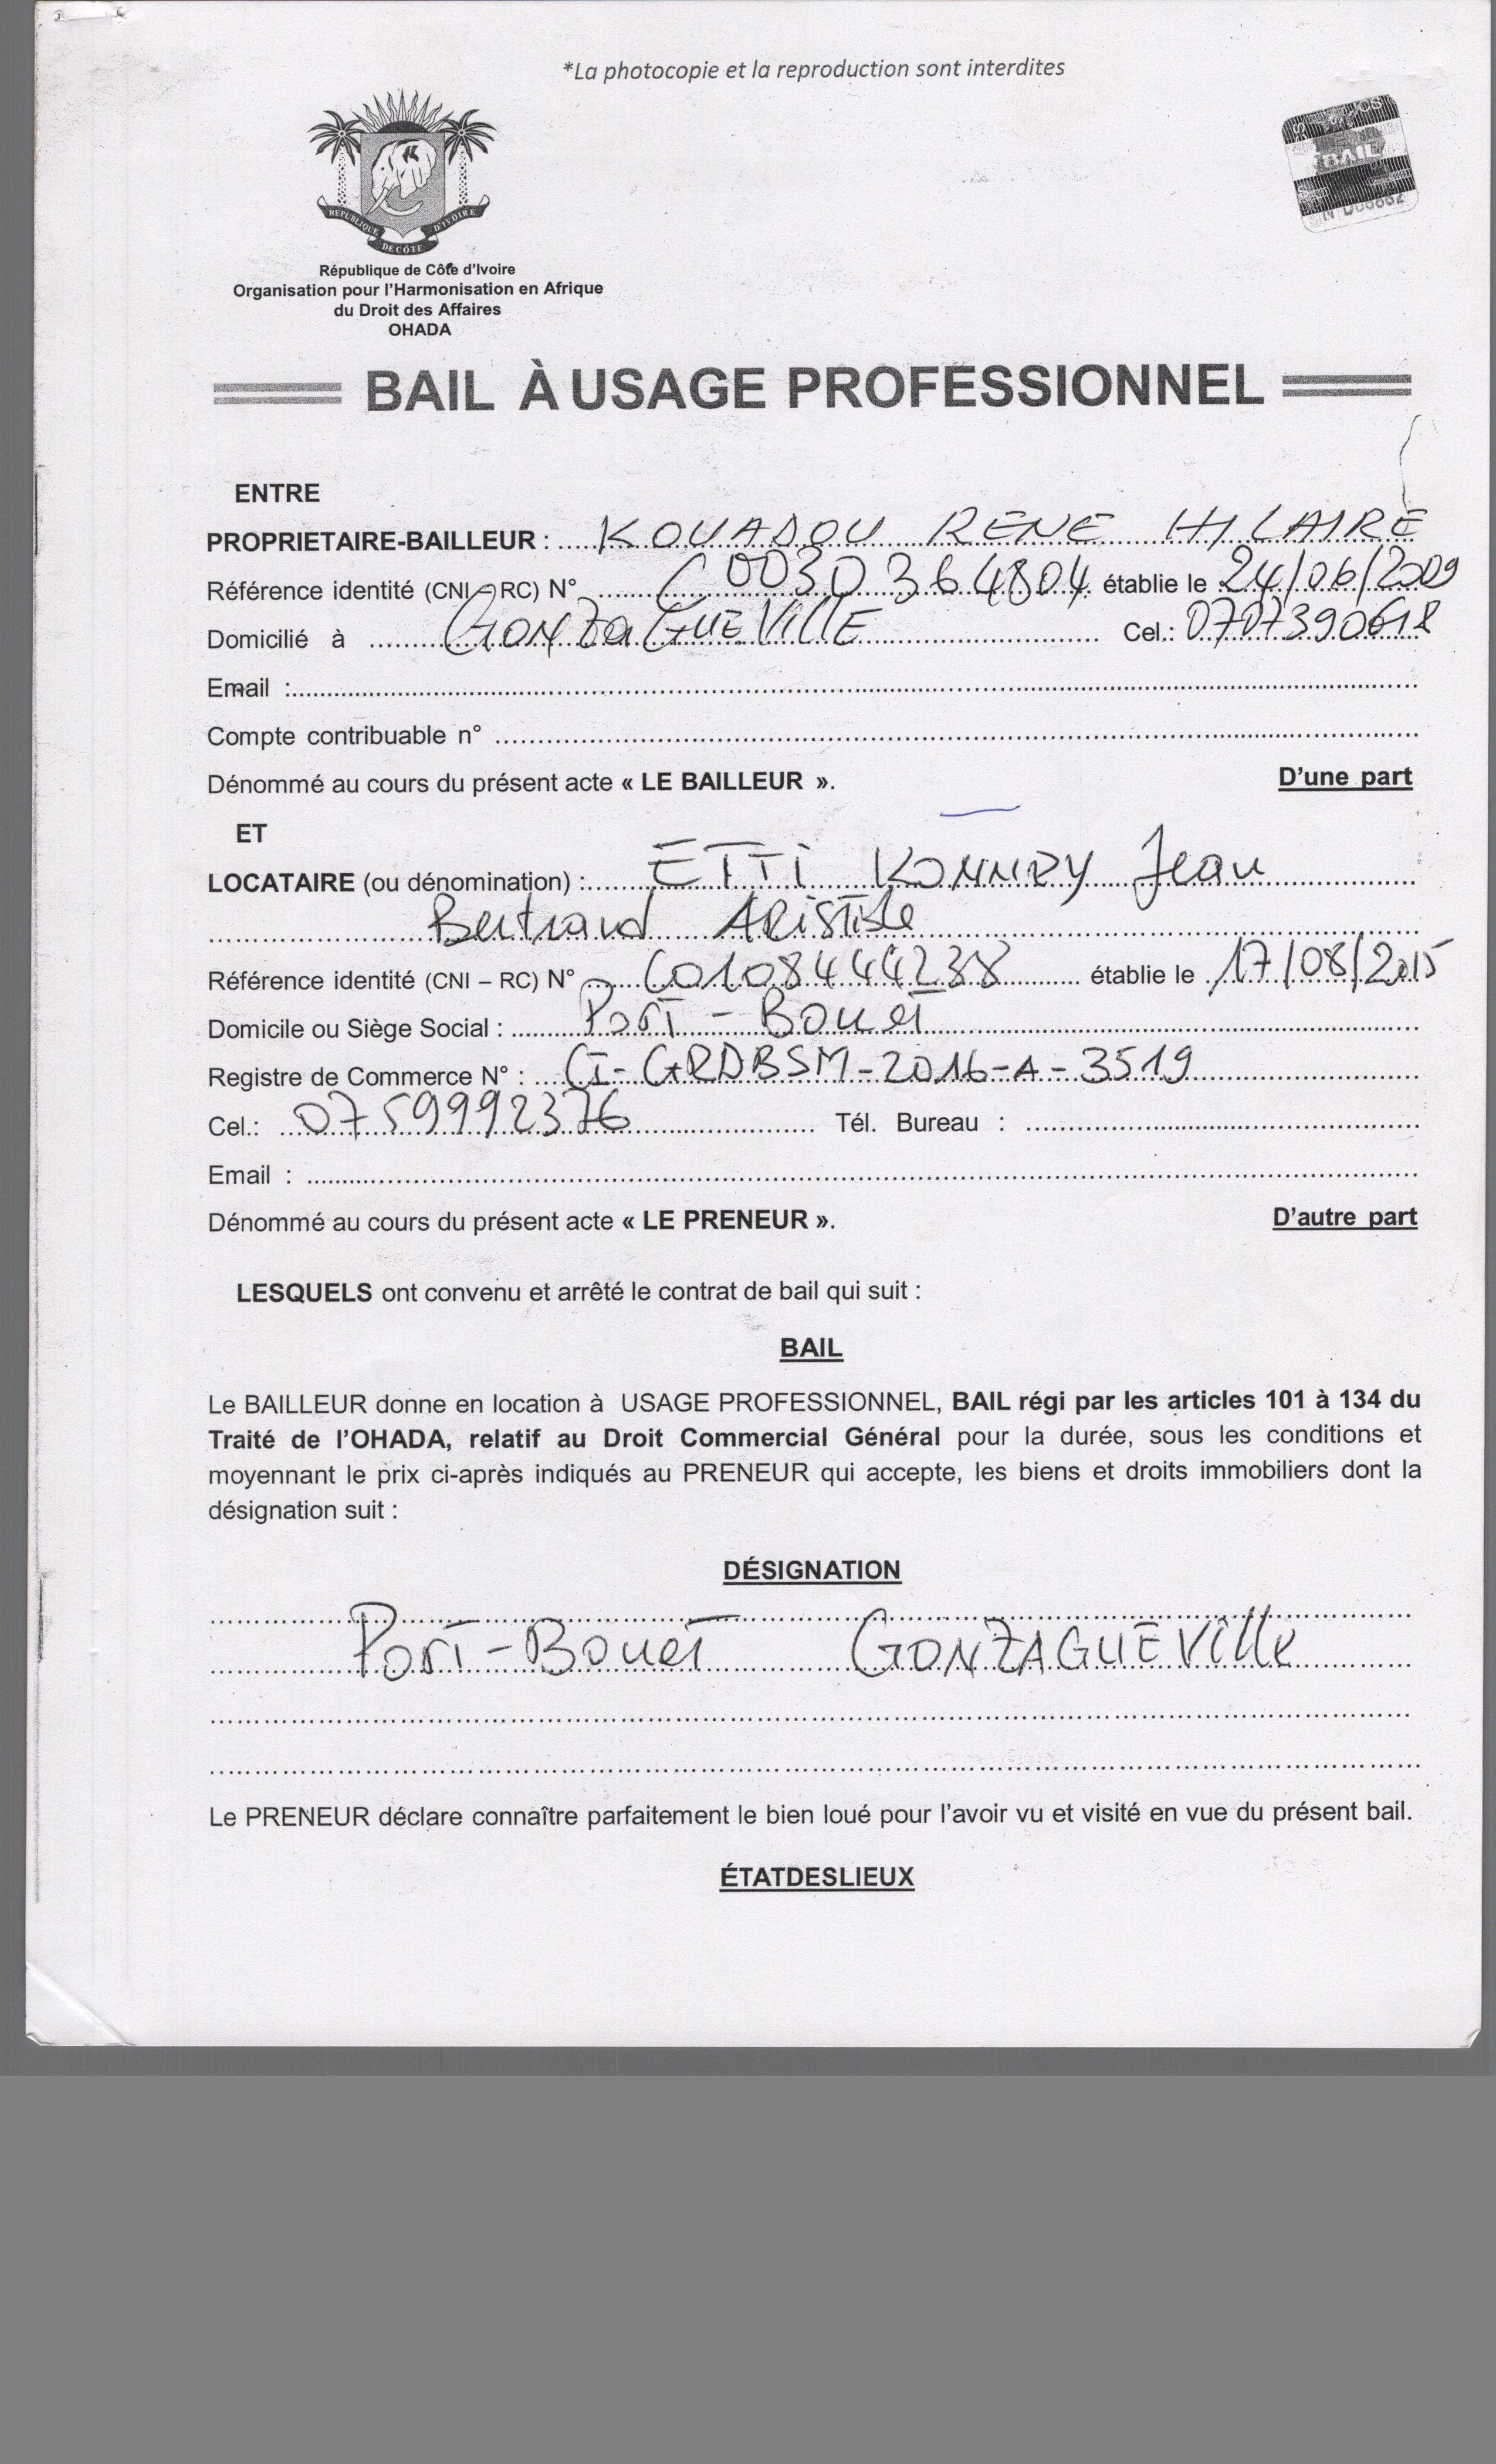 *La photocopie et la reproduction sont interdites
BAIL
REPUBLIQUE DE CÔTE D'IVOIRE
République de Côte d'Ivoire
Organisation pour l'Harmonisation en Afrique
du Droit des Affaires
OHADA
BAIL À USAGE PROFESSIONNEL
ENTRE
PROPRIETAIRE-BAILLEUR : KOUADOU RENE HILAIRE
Référence identité (CNI – RC) N° C0030364804 établie le 24/06/2009
Domicilié à GONZAGUEVILLE Cel.: 0707390618
Email :
Compte contribuable n°
Dénommé au cours du présent acte « LE BAILLEUR ». D'une part
ET
LOCATAIRE (ou dénomination) : ETTI Jean
Bertrand ARISTIDE
Référence identité (CNI – RC) N° C01084444238 établie le 17/08/2015
Domicile ou Siège Social : Port-Bouët
Registre de Commerce N° : CI-GRDBSM-2016-A-3519
Cel.: 0759992376 Tél. Bureau :
Email :
Dénommé au cours du présent acte « LE PRENEUR ». D'autre part
LESQUELS ont convenu et arrêté le contrat de bail qui suit :
BAIL
Le BAILLEUR donne en location à USAGE PROFESSIONNEL, BAIL régi par les articles 101 à 134 du
Traité de l'OHADA, relatif au Droit Commercial Général pour la durée, sous les conditions et
moyennant le prix ci-après indiqués au PRENEUR qui accepte, les biens et droits immobiliers dont la
désignation suit :
DÉSIGNATION
Port-Bouët GONZAGUEVille
Le PRENEUR déclare connaître parfaitement le bien loué pour l'avoir vu et visité en vue du présent bail.
ÉTATDESLIEUX